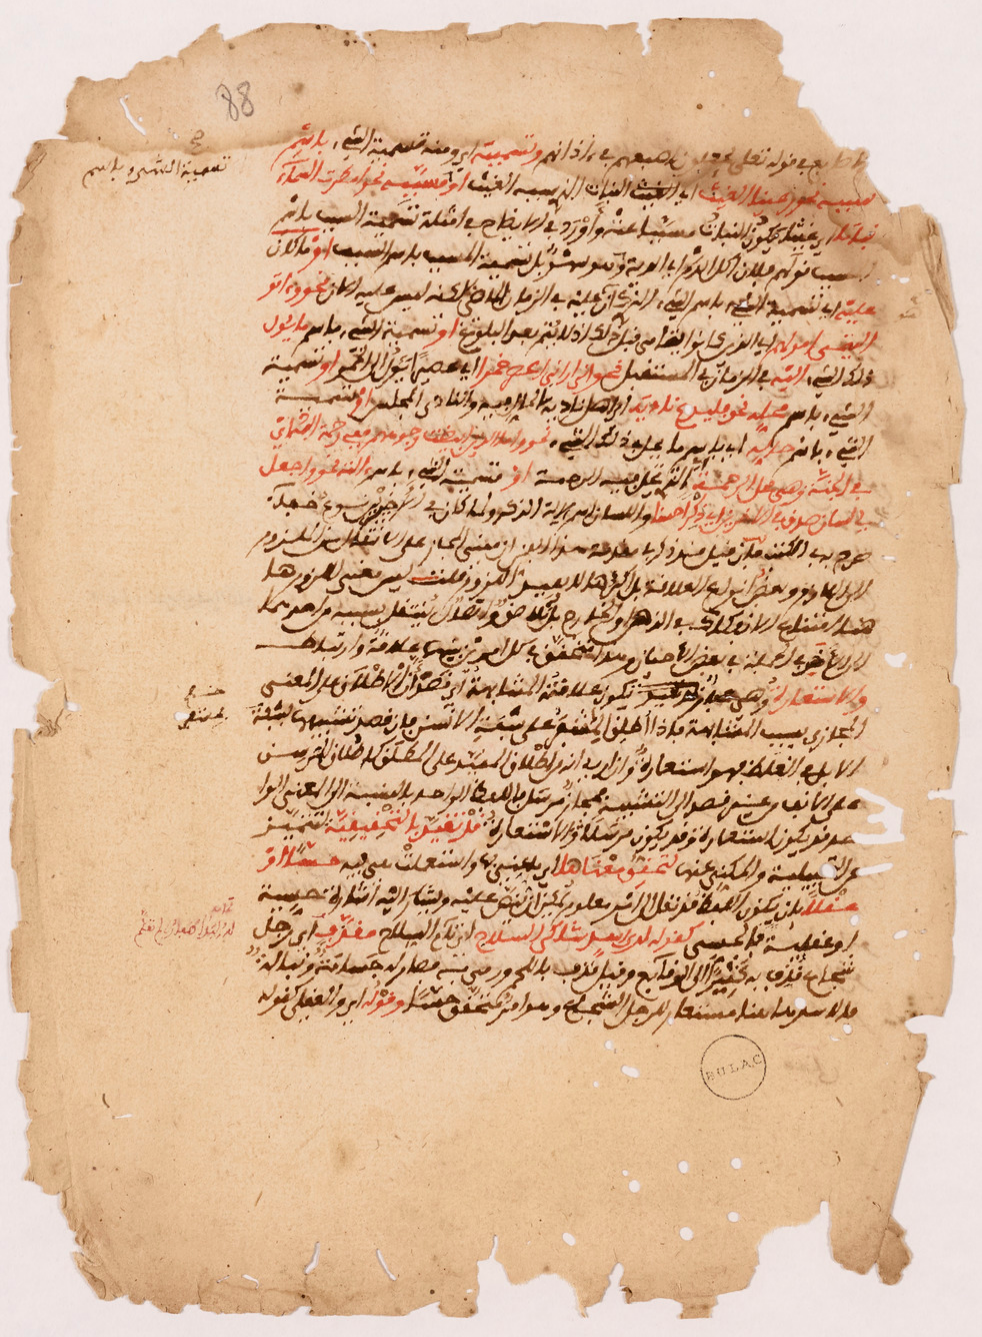 88
تسمية الشيء باسم
في قوله تعالى يجعلون أصابعهم في ءاذانهم وتسميته اي ومنه تسمية الشيء باسم
سببه نحو رعينا الغيث اي النبات الذي سببه الغيث او مسببه نحو امطرت السماء
نباتا اي غيثا يكون النبات مسببا عنه وأورد في الايضاح في امثلة تسمية السبب باسم
المسبب قولهم فلان اكل الدم اي الدية وهو سهو بل تسمية المسبب باسم السبب او ما كان
عليه اي تسمية الشيء باسم الشيء الذي كان عليه في الزمان الماضي لكنه ليس عليه الان نحو وءاتوا
اليتمى اموالهم اي الذين كانوا يتامى قبل ذلك اذ لا يتم بعد البلوغ او تسمية الشيء باسم ما يئول
ذلك الشيء اليه في الزمان المستقبل نحو اني اراني اعصر خمرا اي عصيرا يئول الى الخمر او تسمية
الشيء باسم محله نحو فليدع ناديه اي اهل ناديه الحال فيه والنادي المجلس او تسمية
الشيء باسم حاله اي باسم ما يحل في ذلك الشيء نحو واما الذين ابيضت وجوههم ففي رحمة الله اي
في الجنة وهي محل الرحمة التي تحل فيه الرحمة او تسمية الشيء باسم ءالته نحو واجعل
لي لسان صدق في الاخرين اي ذكرا حسنا واللسان اسم لالة الذكر ولما كان في
صرح به في الكتاب فان قيل قد ذكر في مقدمة هذا الفن ان مبنى المجاز على الانتقال من الملزوم
الى اللازم وبعض انواع العلاقة بل اكثرها لا يفيد اللزوم قلت ليس معنى اللزوم ها
هنا امتناع الانفكاك في الذهن او الخارج بل تلاصق واتصال ينتقل بسببه من احدهما
الى الأخر في الجملة في بعض الأحيان وهذا متحقق في كل امرين بينهما علاقة وارتباط
والاستعارة وهي مجاز يكون علاقته المشابهة اي قصد ان الاطلاق على المعنى
المجازي بسبب المشابهة فاذا أطلق المشفر على شفة الانسان فان قصد تشبيهها بشفة
الابل في الغلظ فهو استعارة وان اريد انه من اطلاق المقيد على المطلق كاطلاق المرسن
على الأنف من غير قصد الى التشبيه فمجاز مرسل فاللفظ الواحد بالنسبة الى المعنى الوا
حد قد يكون استعارة وقد يكون مرسلا والاستعارة قد تقيد بالتحقيقية لتتميز
عن التخييلية والمكني عنها لتحقق معناها اي ما عني بها واستعملت هي فيه حسا او
عقلا بان يكون اللفظ قد نقل الى امر معلوم يمكن ان ينص عليه ويشار اليه اشارة حسية
او عقلية فالحسي كقوله لدى اسد شاكي السلاح اي تام السلاح مقذف اي رجل
شجاع قذف به كثيرا الى الوقائع وقيل قذف باللحم ورمي به فصار له جسامة ونبالة
فالاسد هاهنا مستعار للرجل الشجاع وهو امر متحقق حسا وقوله اي والعقلي كقوله
BULAC